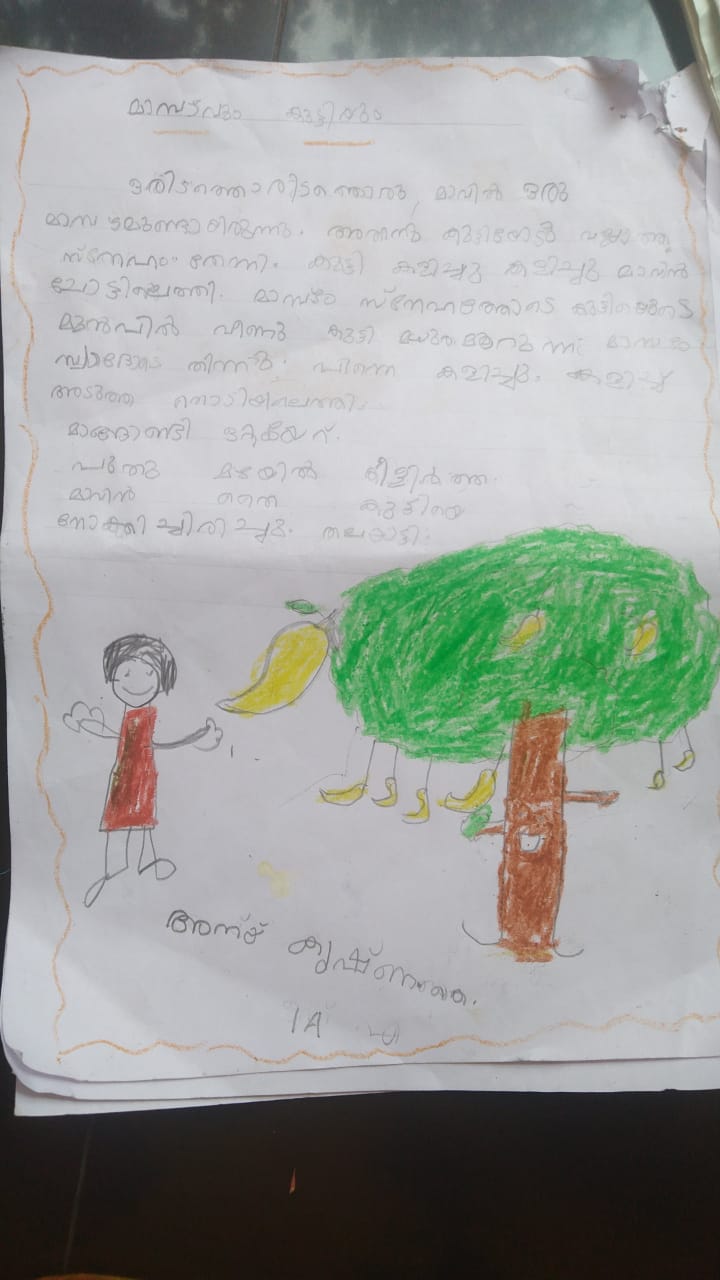 മാമ്പഴവും കുട്ടിയും
ഒരിടത്തൊരിടത്തൊരു മാവിൽ ഒരു
മാമ്പഴമുണ്ടായിരുന്നു. അതിനു കുട്ടിയോട് വല്ലാത്ത
സ്നേഹം തോന്നി. കുട്ടി കളിച്ചു കളിച്ചു മാവിൻ
ചോട്ടിലെത്തി. മാമ്പഴം സ്നേഹത്തോടെ കുട്ടിയുടെ
മുൻപിൽ വീണു കുട്ടി മധുരമൂറുന്ന മാമ്പഴം
സ്വാദോടെ തിന്നു. പിന്നെ കളിച്ചു. കളിച്ച്
അടുത്ത തൊടിയിലെത്തി.
മാങ്ങോണ്ടി ഒറ്റയേറ്.
പുതു മഴയിൽ കിളിർത്ത
മാവിൻ തൈ കുട്ടിയെ
നോക്കി ച്ചിരിച്ചു. തലയാട്ടി.
കൃഷ്ണ
1A